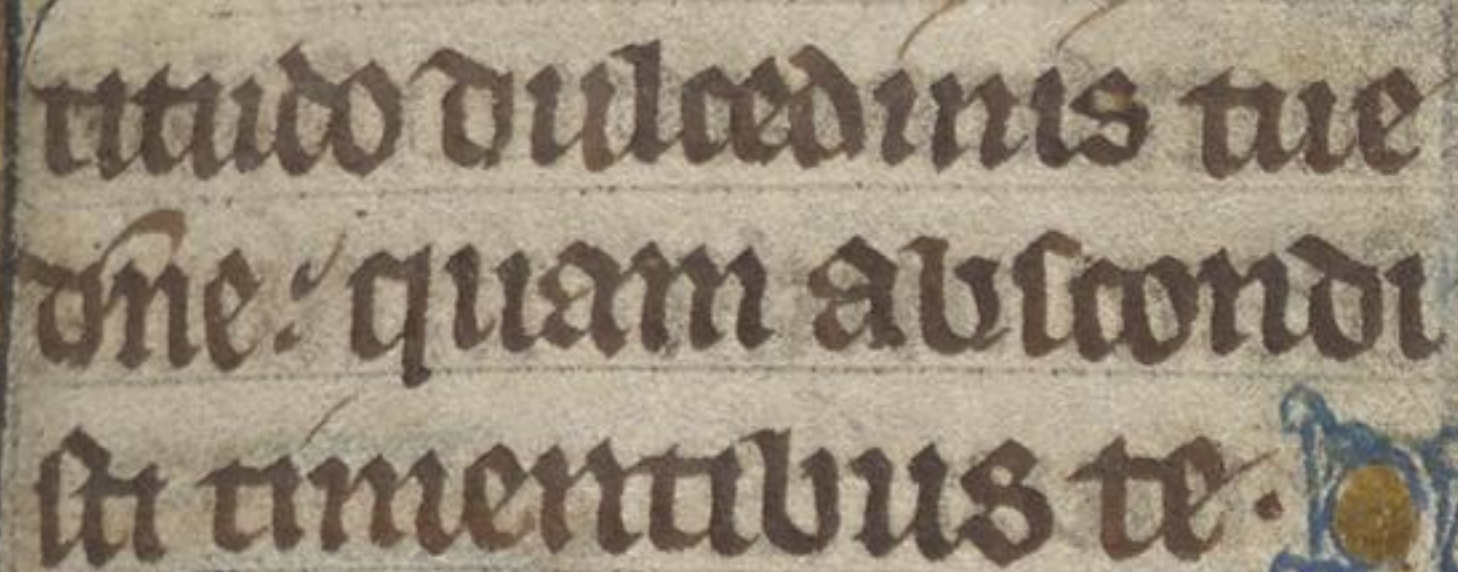 titudo dulcedinis tue
dn̄e: quam abscondi
sti timentibus te.